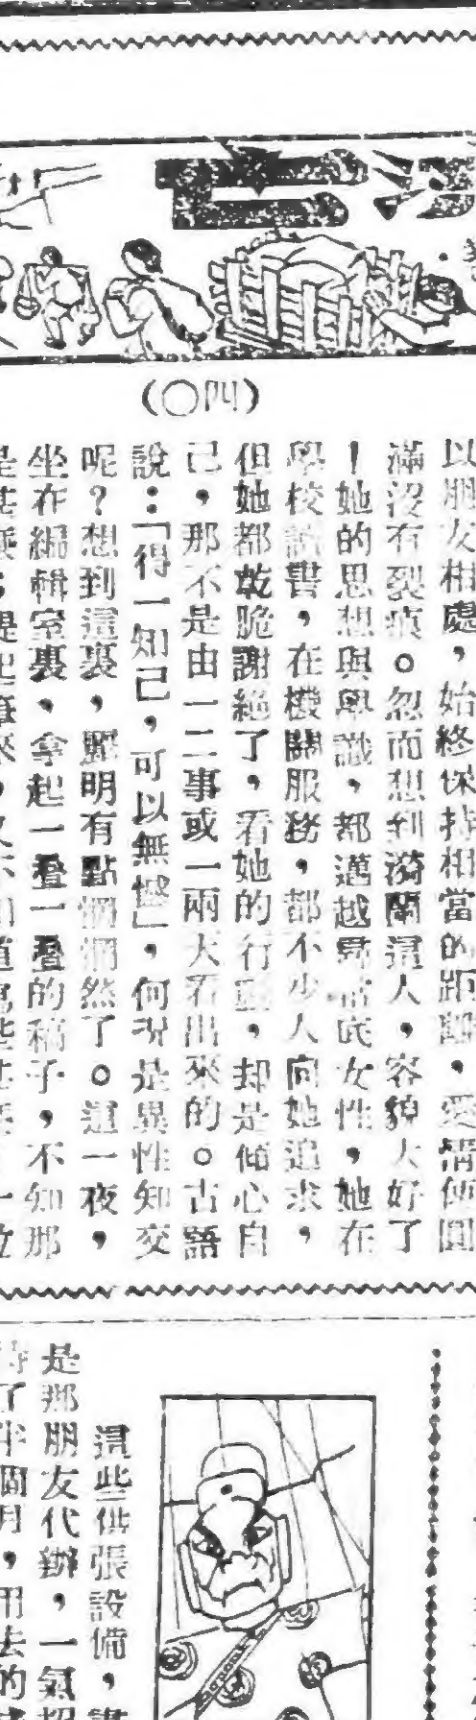 （四〇）
以朋友相處，始終保持相當的距離，愛情便圓
滿沒有裂痕。忽而想到漪蘭這人，容貌太好了
！她的思想與學識，都邁越尋常底女性，她在
學校讀書，在機關服務，都不少人向她追求，
但她都乾脆謝絕了，看她的行動，却是傾心自
己，那不是由一二事或一兩天看出來的。古語
說：「得一知己，可以無憾」，何況是異性知交
呢？想到這裏，照明有點惘惘然了。這一夜，
坐在編輯室裏，拿起一叠一叠的稿子，不知那
這些供張設備，
是那朋友代辦，一氣
了半個月，用去的